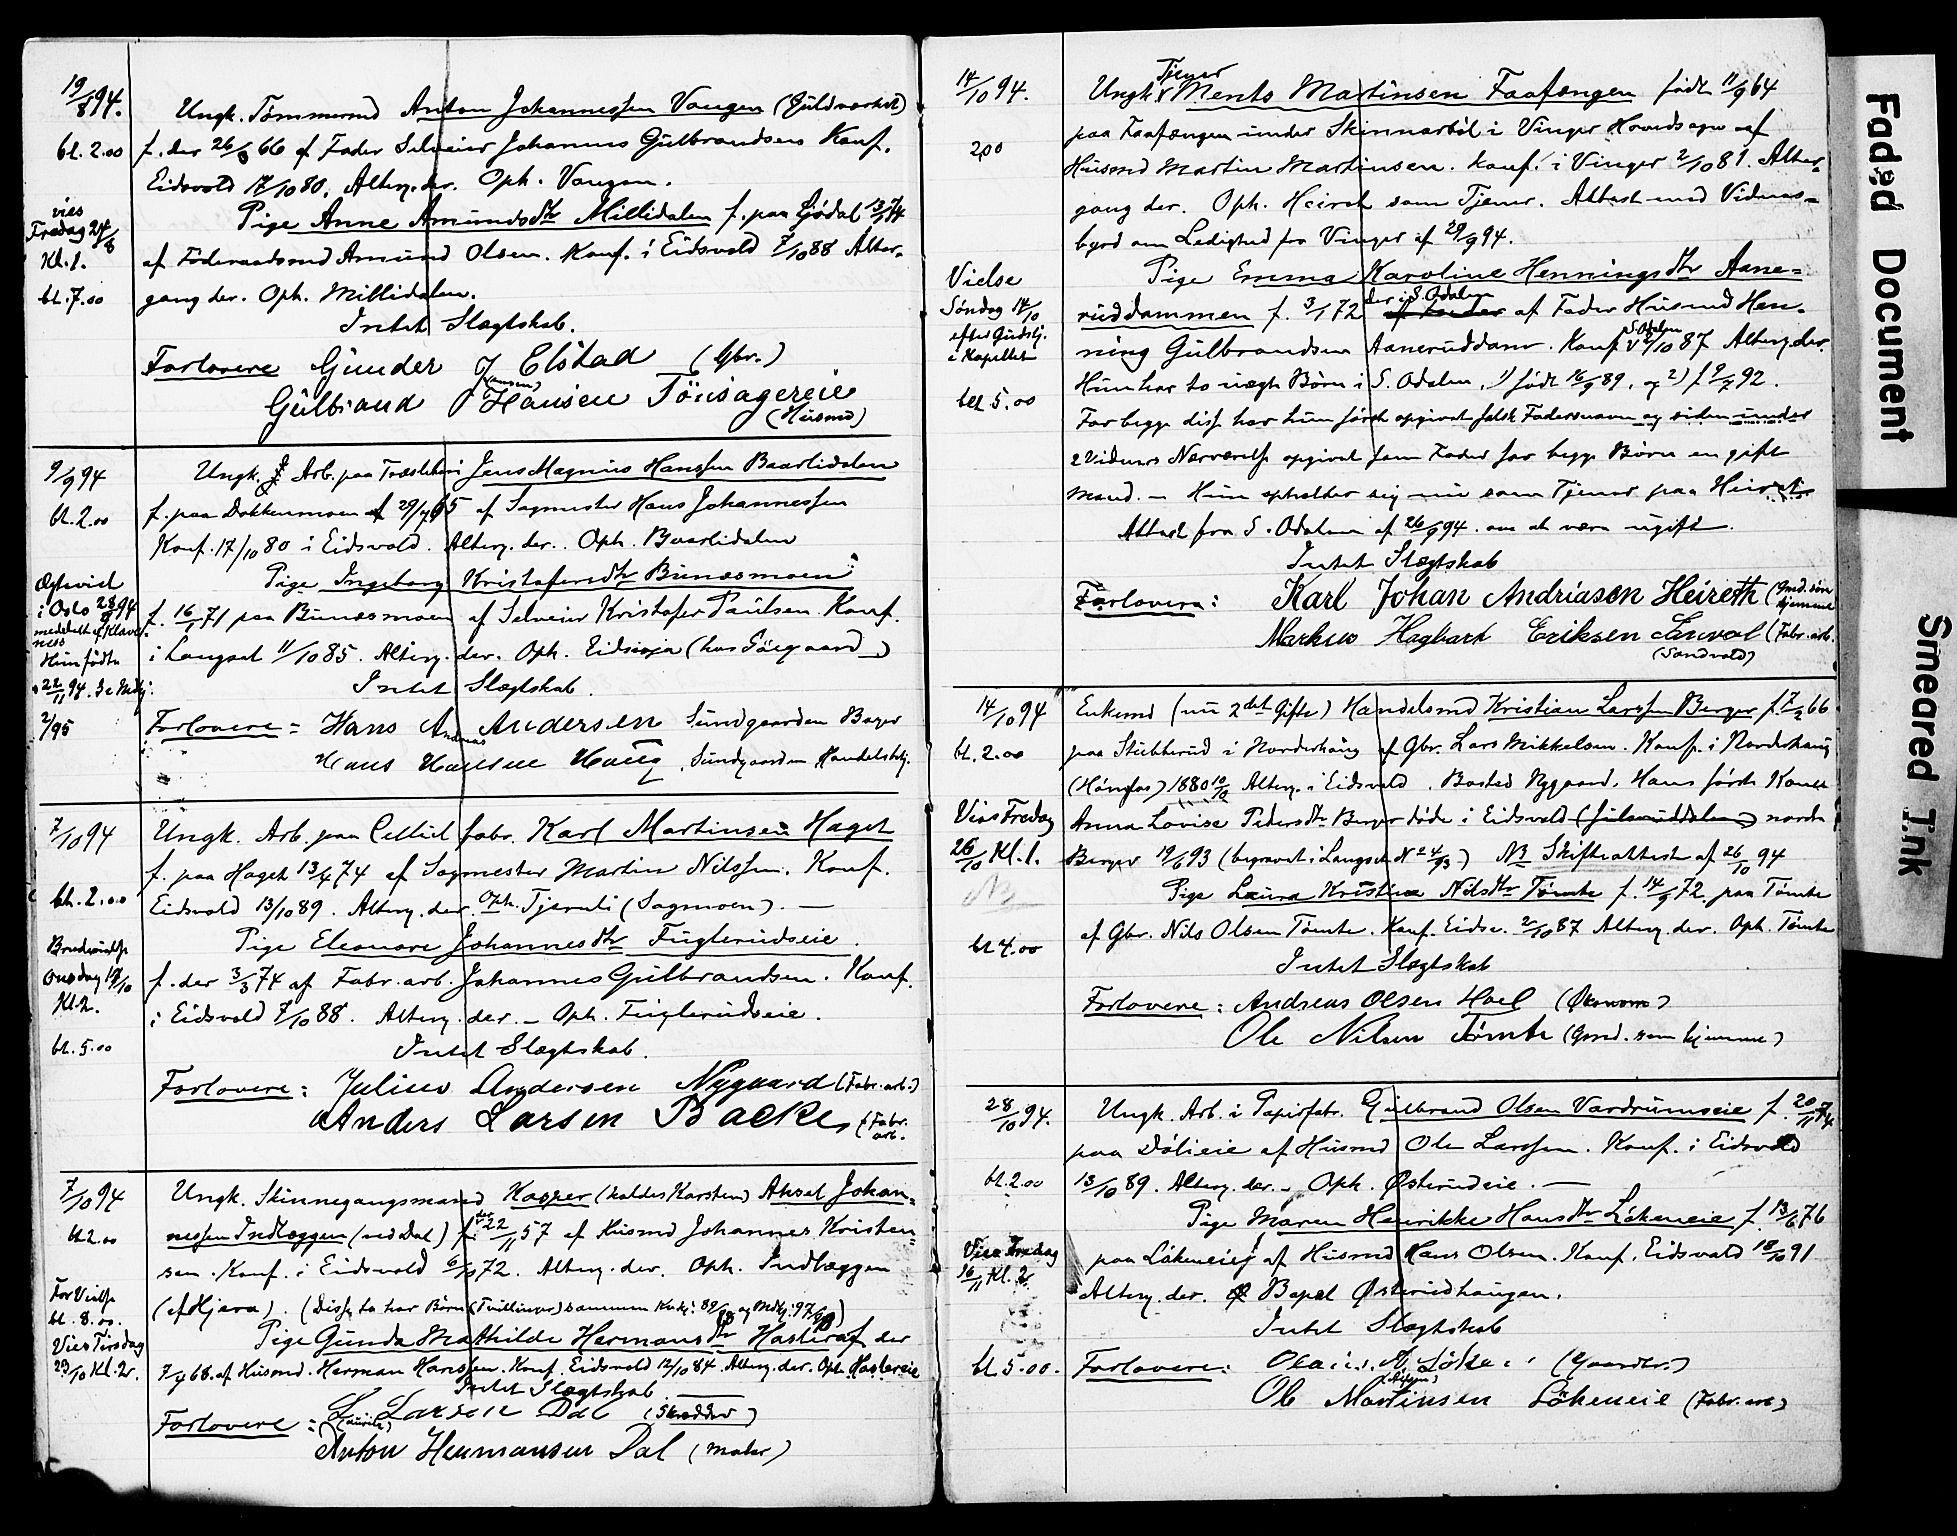 19/8 94.
Ungk. Tømmermd Anton Johannessen Vangen (Guldværket)
bt. 2.00 f. der 26/8 66 af Fader Selveier Johannes Gulbrandsens Konf.
Eidsvold 17/10 80. Alterg. der. Oph. Vangen.
vies
Fredag 24/8
Kl. 1.
bt. 7.00
Pige Anne Amundsdtr Millidalen f. paa Gjødal
af Føderaadsmd Amund Olsen. Konf. i Eidsvold 7/10 88 Alter-
gang der. Oph. Millidalen.
Intet Slægtskab.
Forlovere Gunder J Elstad (Gbr.)
(Jensen)
Gulbrand Hansen Tönsagereie
(Husmd)
9/9 94
bt. 2.00
Ungk. Arb. paa Træsliberi Jens Magnus Hanssen Baarlidalen
f. paa Dokkenmoen 29/7 65 af Sagmester Hans Johannessen
Konf. 17/10 80 i Eidsvold. Alterg. der. Oph. Baarlidalen
Pige Ingeborg Kristofersdtr Bunæsmoen
f. 16/1 71 paa Bunæsmoen af Selveier Kristofer Paulsen. Konf.
i Langset 11/10 85. Alterg. der. Oph. Eidsvoja (hos Göegaard)
Intet Slægtskab.
Ægteviet
i Oslo 23/9 94
meddelt af Klave-
ness
Hun födte
22/11 94. Se
2/95
Forlovere = Hans A Andersen Sundgaarden Bager
Andreas
Hans Hansen Haug, Sundgaarden Handelsbetj.
7/10 94
bt. 2.00
Brudevielse
Onsdag 17/10
Kl. 2.
bt. 5.00
Ungk. Arb. paa Cellul. fabr. Karl Martinsen Haget
f. paa Haget 13/4 74 af Sagmester Martin Nilssen. Konf.
Eidsvold 13/10 89. Alterg. der. Oph. Tjernli (Sagmoen). —
Pige Eleonore Johannesdtr Fuglerudseie.
f. der 3/3 74 af Fabr. arb. Johannes Gulbrandsen. Konf.
i Eidsvold 7/10 88. Alterg. der. – Oph. Fuglerudseie.
Intet Slægtskab.
Forlovere: Julius Andersen Nygaard (Fabr. arb.)
Anders Larsen Bakke, (Fabr. arb.
7/10 94
bt. 2.00
For Vielse
bt. 8.00.
Vies Tirsdag
23/10 Kl. 2.
Ungk. Skinnegangsmand Kasper (kaldes Karsten) Aksel Johan-
nessen Indlæggen (ved Dal) f. der 22/11 57 af Husmd Johannes Kristen-
sen. Konf. i Eidsvold 6/10 72. Alterg. der. Oph. Indlæggen
(af Hjera). (Disse to har Børn (Tvillinger) sammen
Pige Gunda Mathilde Hermansdtr Hasleraf der
af Husmd. Herman Hanssen. Konf. Eidsvold 12/10 84. Alterg. der. Oph. Haslereie
Intet Slægtskab.
Forlovere: L Larsen Dal (Skrædder)
(Lauritz)
Anton Hermansen Dal (Maler)
14/10 94.
2,00
Vielse
Søndag 14/10
efter Gudstj.
i Kapellet
bt. 5.00
Tjener
Ungk. Ments Martinsen Faafængen født 11/9 64
paa Faafængen under Skinnarböl i Vinger Hovedsogn af
Husmd Martin Martinsen. Konf. i Vinger 2/10 81. Alter-
gang der. Oph. Heireth som Tjener. Attest med Vidnes-
byrd om Ledighed fra Vinger af 29/9 94.
Pige Emma Karoline Henningsdtr Aane-
der i S. Odalen
ruddammen f. 3/1 72 af Fader Husmd Hen-
ning Gulbrandsen Aaneruddam. Konf. S. Odalen /10 87 Alterg. der.
Hun har to uægte Børn i S. Odalen, 1) født 16/9 89, og 2) f. 92.
For begge disse har hun først opgivet falsk Fadernavn og siden under
2 Vidners Nærværelse opgivet som Fader for begge Børn en gift
Mand. – Hun opholder sig nu som Tjener paa Heireth
Attest fra S. Odalen af 26/9 94. om at være ugift.
Intet Slægtskab
Forlovere: Karl Johan Andriasen Heireth (Gmd. søn hjemme
Markus Hagbart Eriksen Sanvol (Fabr. arb.
(Sandvold)
14/10 94
bt. 2.00
Vies Fredag
26/10 Kl. 1.
NB
bt 4.00
Enkemd (nu 2det Gifte) Handelsmd Kristian Larssen Berger f. 7/2 66
paa Stubberud i Norderhaug af Gbr. Lars Mikkelsen. Konf. i Norderhaug
(Hønefos) 1880 10/10 Alterg. i Eidsvold. Bosted Nygaard. Hans første Kone
Anna Lovise Pedersdtr Berger døde i Eidsvold (Julsruddalen) nordre
Berger 19/6 93 (begravet i Langset No 24/93) NB Skifteattest af 26/10 94
Pige Laura Kristine Nilsdtr Tömte f. 14/9 72. paa Tömte
af Gbr. Nils Olsen Tömte. Konf. Eidsv. 2/10 87 Alterg. der. Oph. Tömte
Intet Slægtskab
Forlovere: Andreas Olsen Hoel (Økonom)
Ole Nilsen Tömte (Gmd. søn hjemme)
28/10 94.
bt. 2.00
Vies Fredag
16/11 Kl. 2.
bt 5.00.
Ungk. Arb. i Papirfabr. Gulbrand Olsen Vardrumseie f. 20/11 74
paa Dölieie af Husmd Ole Larssen. Konf. i Eidsvold
13/10 89. Alterg. der. – Oph. Østerudeie. —
Pige Maren Henrikke Hansdtr Lökeneie f. 13/6 76
paa Lökeneie af Husmd Hans Olsen. Konf. Eidsvold 18/10 91
Alterg. der. Bopæl Østerudhaugen.
Intet Slægtskab
Forlovere: (Gaardbr.)
Ole Martinsen Lökeneie (Fabr. arb)
Faded Document
Smeared Ink